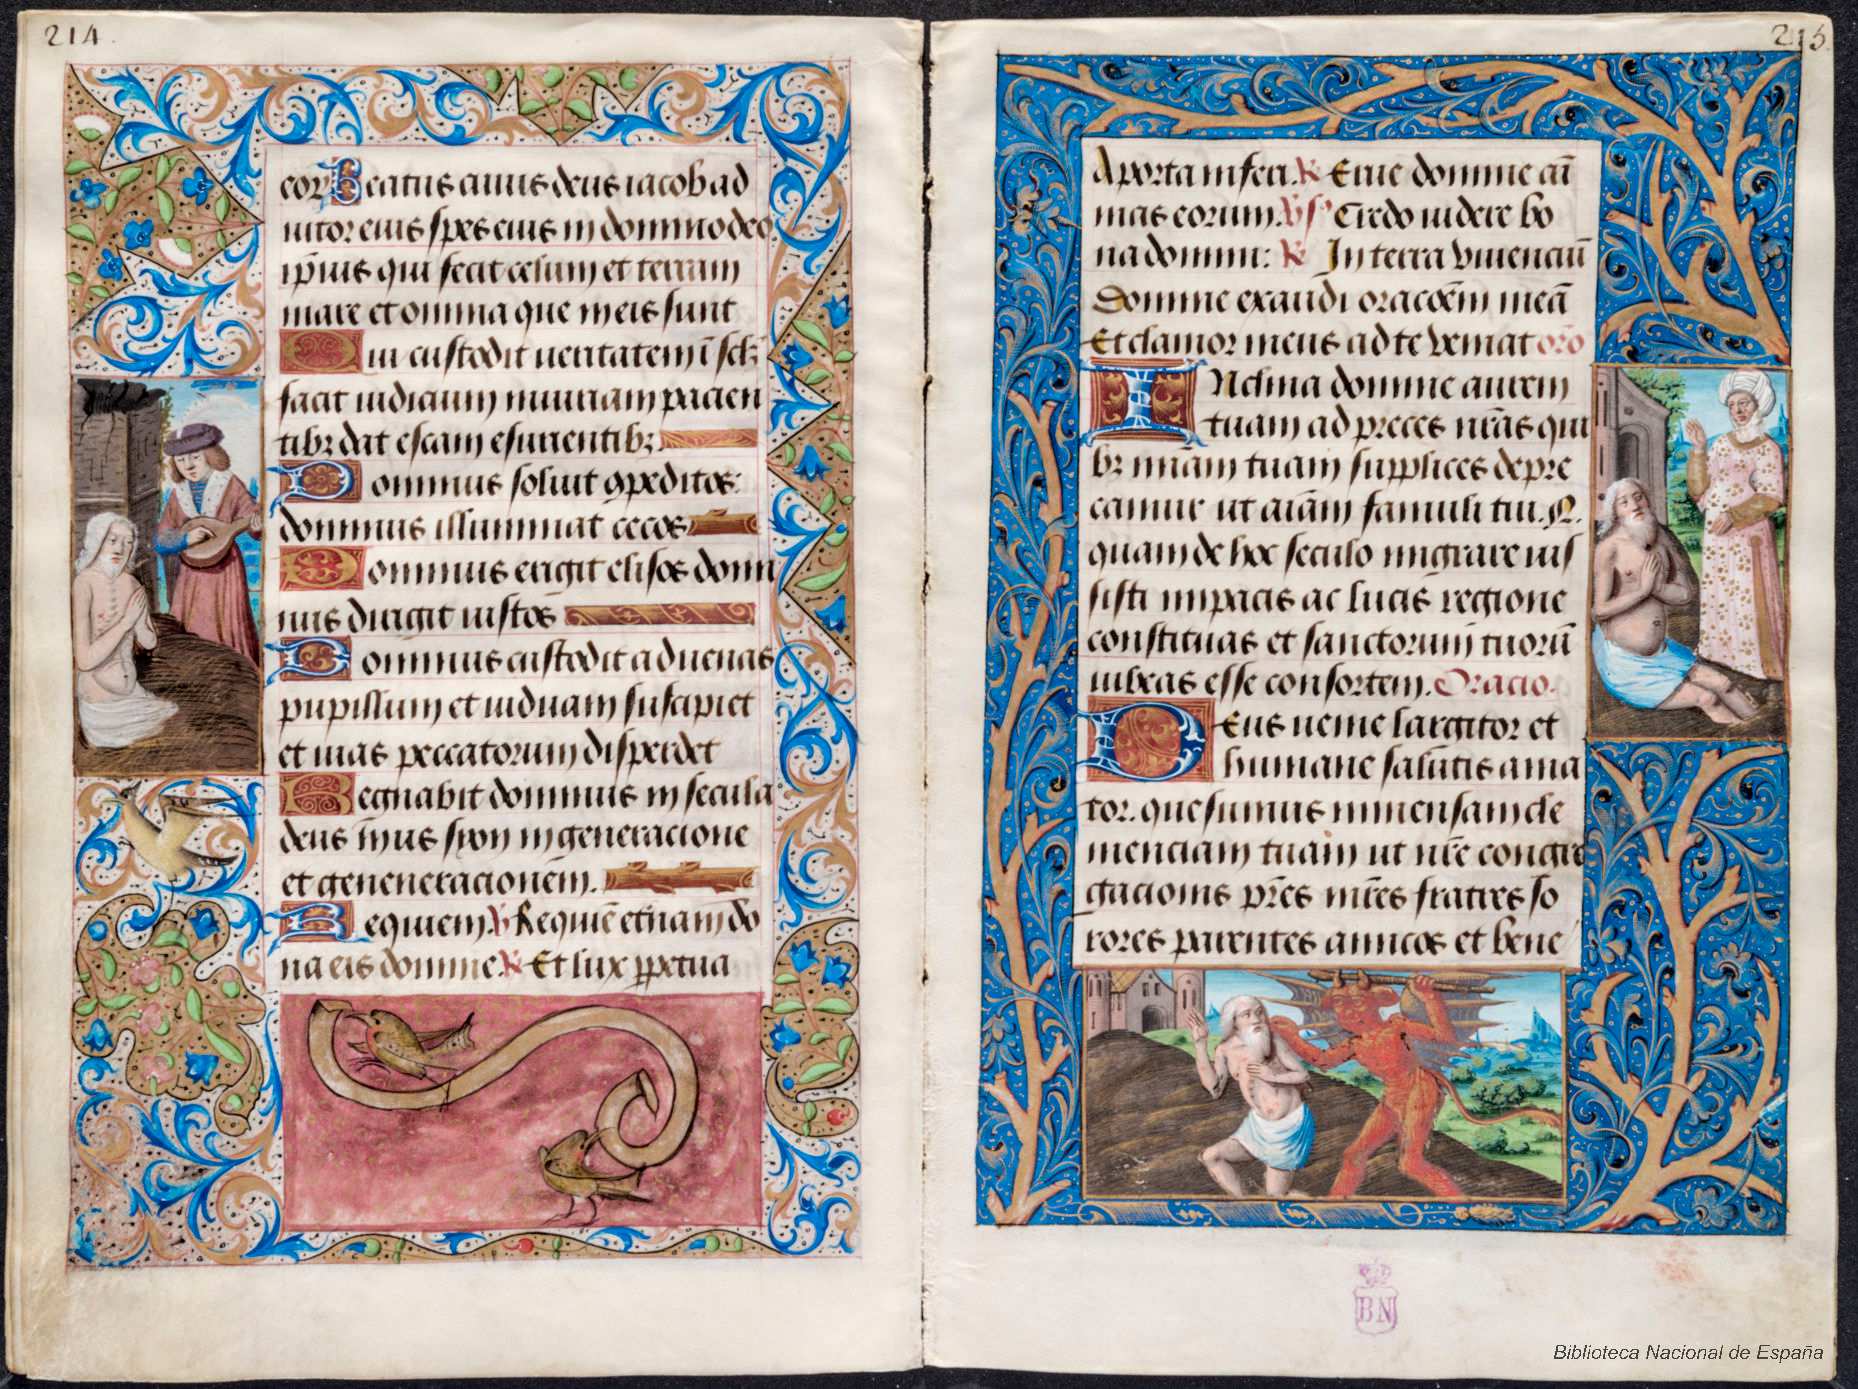 214.
eor Beatus cuius deus iacob ad
iutor eius spes eius in domino deo
ip̄ius qui fecit celum et terram
mare et omnia que in eis sunt
Qui custodit ueritatem ī sclm̄
facit iudicium iniuriam pacien
tibꝫ dat escam esurientibꝫ
Dominus soluit ꝯpeditos:
dominus illuminat cecos
Dominus erigit elisos domi
nus dirigit iustos
Dominus custodit aduenas
pupillum et uiduam suscipiet
et uias peccatorum disperdet
Regnabit dominus in secula
deus tuus syon in generacione
et geneneracionem.
Requiem. ℣ Requiē et̄nam do
na eis domine. ℟ Et lux ꝑpetua
215
A porta inferi. ℟ Erue domine aī
mas eorum. ℣s Credo uidere bo
na domini: ℟ In terra viuenciū
Domine exaudi oracōem meā
Et clamor meus ad te veniat oro
INclina domine aurem
tuam ad preces nr̄as qui
bꝫ miām tuam supplices depre
camur ut aīām famuli tui. N.
quam de hoc seculo migrare ius
sisti in pacis ac lucis regione
constituas et sanctorum tuorū
iubeas esse consortem. Oracio.
Deus uenie largitor et
humane salutis ama
tor. quesumus inmensam cle
menciam tuam ut nr̄e congre
gacionis pr̄es mr̄es fratres so
rores parentes amicos et bene
BN
Biblioteca Nacional de España